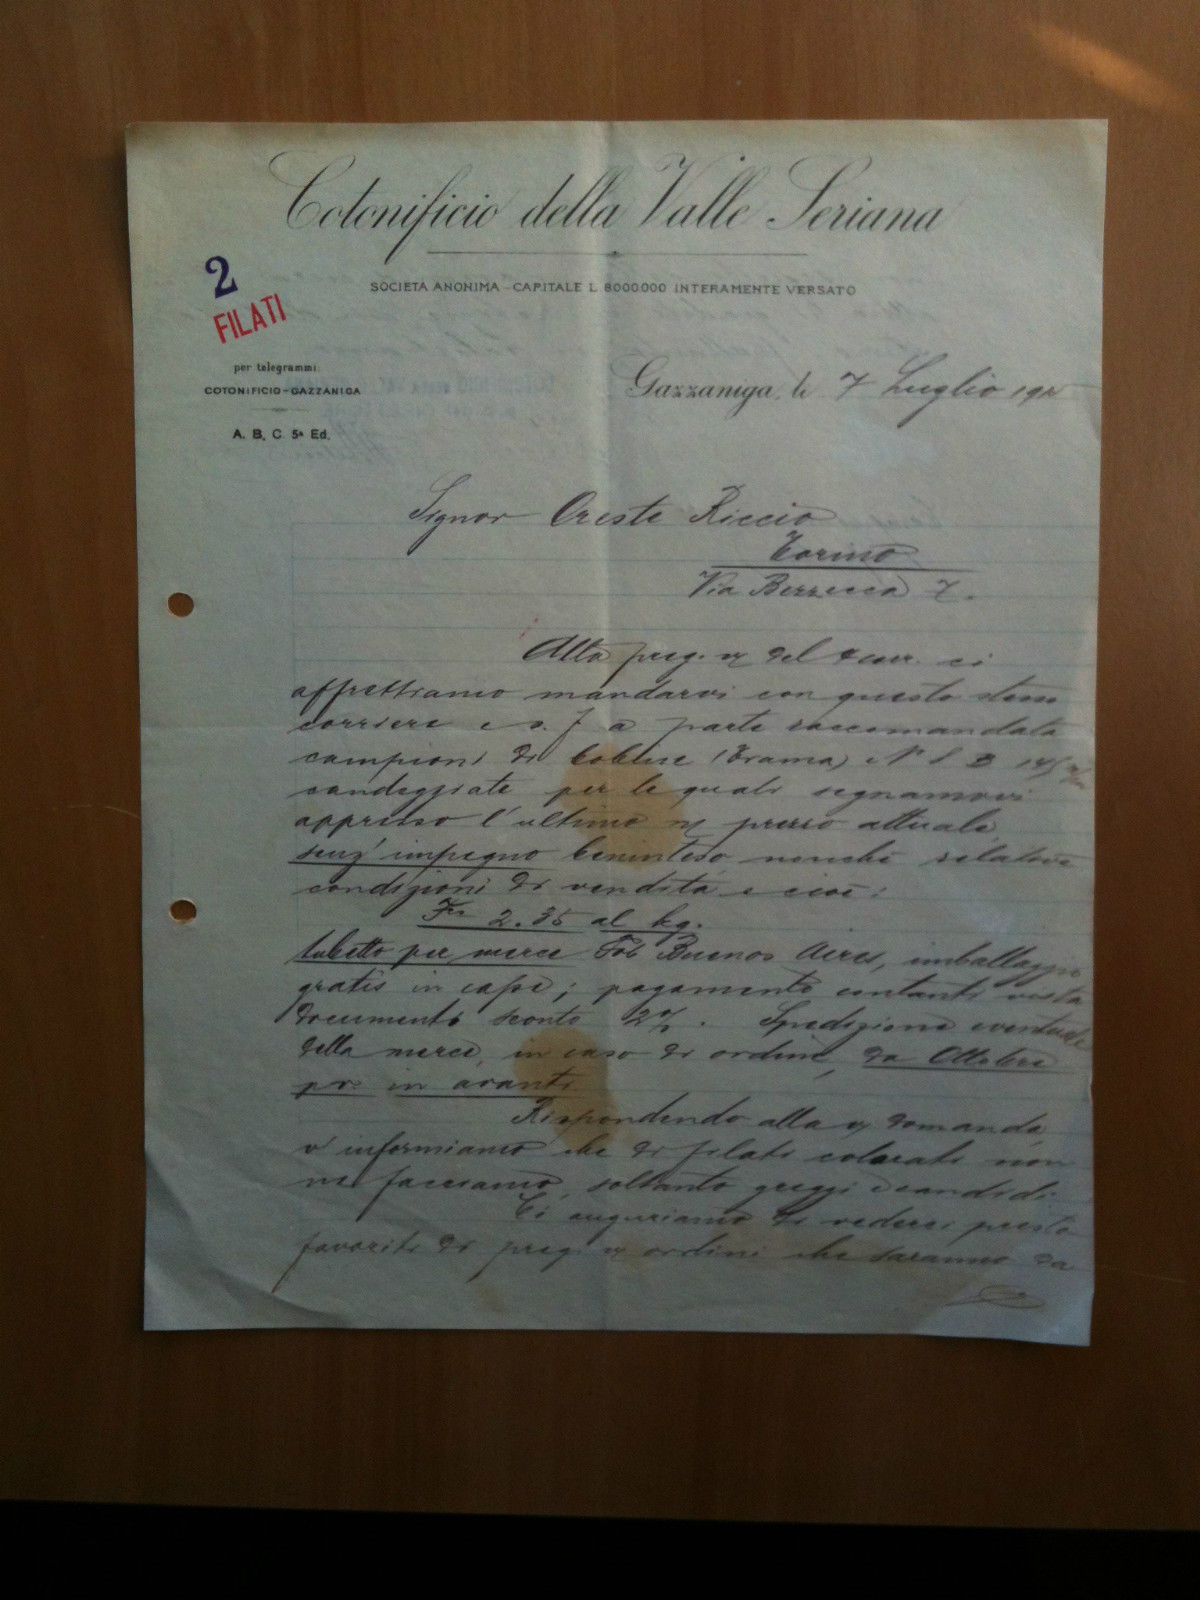 Cotonificio della Valle Seriana
SOCIETÀ ANONIMA - CAPITALE L. 8000000 INTERAMENTE VERSATO
2
FILATI
per telegrammi:
COTONIFICIO - GAZZANIGA
A. B. C. 5ª Ed.
Gazzaniga, li 7 Luglio
Signor Oreste Riccio
Torino
Via Bezzecca 7.
Alla preg. del corr. ci
affrettiamo mandarvi con questo stesso
corriere a parte raccomandata
campioni di (Trama)
candeggiate per le quali segnamovi
appresso l'ultimo prezzo attuale
senz'impegno beninteso nonchè relative
condizioni di vendita e cioè:
Frs 2.35 al kg.
tubetto per merce Fob Buenos Aires, imballaggio
gratis in casse; pagamento contanti vista
documenti sconto 2%. Spedizione eventuale
della merce, in caso di ordine, da Ottobre
pr. in avanti.
Rispondendo alla domanda
v'informiamo che di filati colorati non
ne facciamo, soltanto greggi e candidi.
Ci auguriamo di vederci presto
favoriti di preg. ordini che saranno da